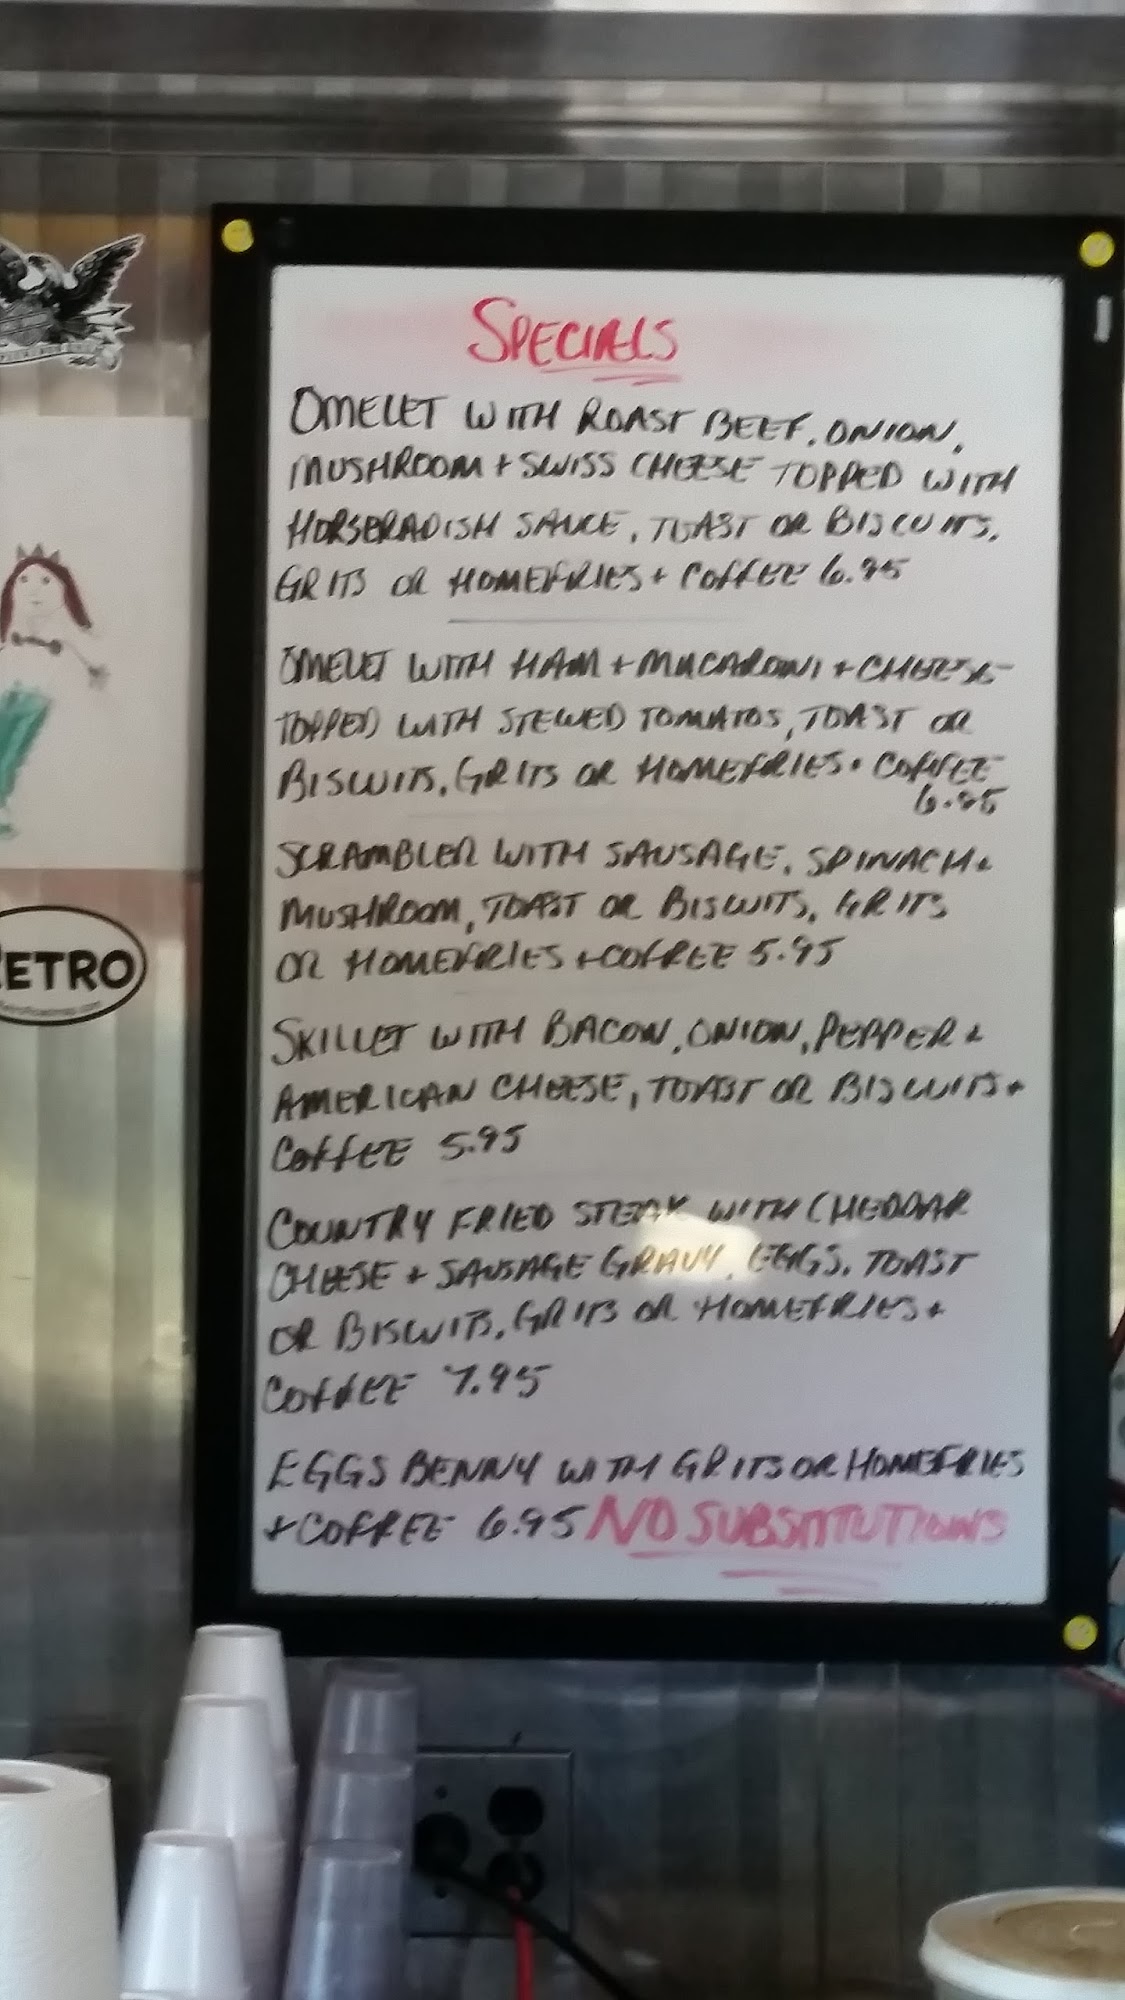 SPECIALS
OMELET WITH ROAST BEEF, ONION,
MUSHROOM + SWISS CHEESE TOPPED WITH
HORSERADISH SAUCE, TOAST OR BISCUITS,
GRITS OR HOMEFRIES + COFFEE 6.95
OMELET WITH HAM + MACARONI + CHEESE
TOPPED WITH STEWED TOMATOS, TOAST OR
BISCUITS, GRITS OR HOMEFRIES + COFFEE
6.95
SCRAMBLER WITH SAUSAGE, SPINACH +
MUSHROOM, TOAST OR BISCUITS, GRITS
OR HOMEFRIES + COFFEE 5.95
SKILLET WITH BACON, ONION, PEPPER +
AMERICAN CHEESE, TOAST OR BISCUITS +
COFFEE 5.95
COUNTRY FRIED STEAK WITH CHEDDAR
CHEESE + SAUSAGE GRAVY, EGGS, TOAST
OR BISCUITS, GRITS OR HOMEFRIES +
COFFEE 7.95
EGGS BENNY WITH GRITS OR HOMEFRIES
+ COFFEE 6.95 NO SUBSTITUTIONS
ETRO